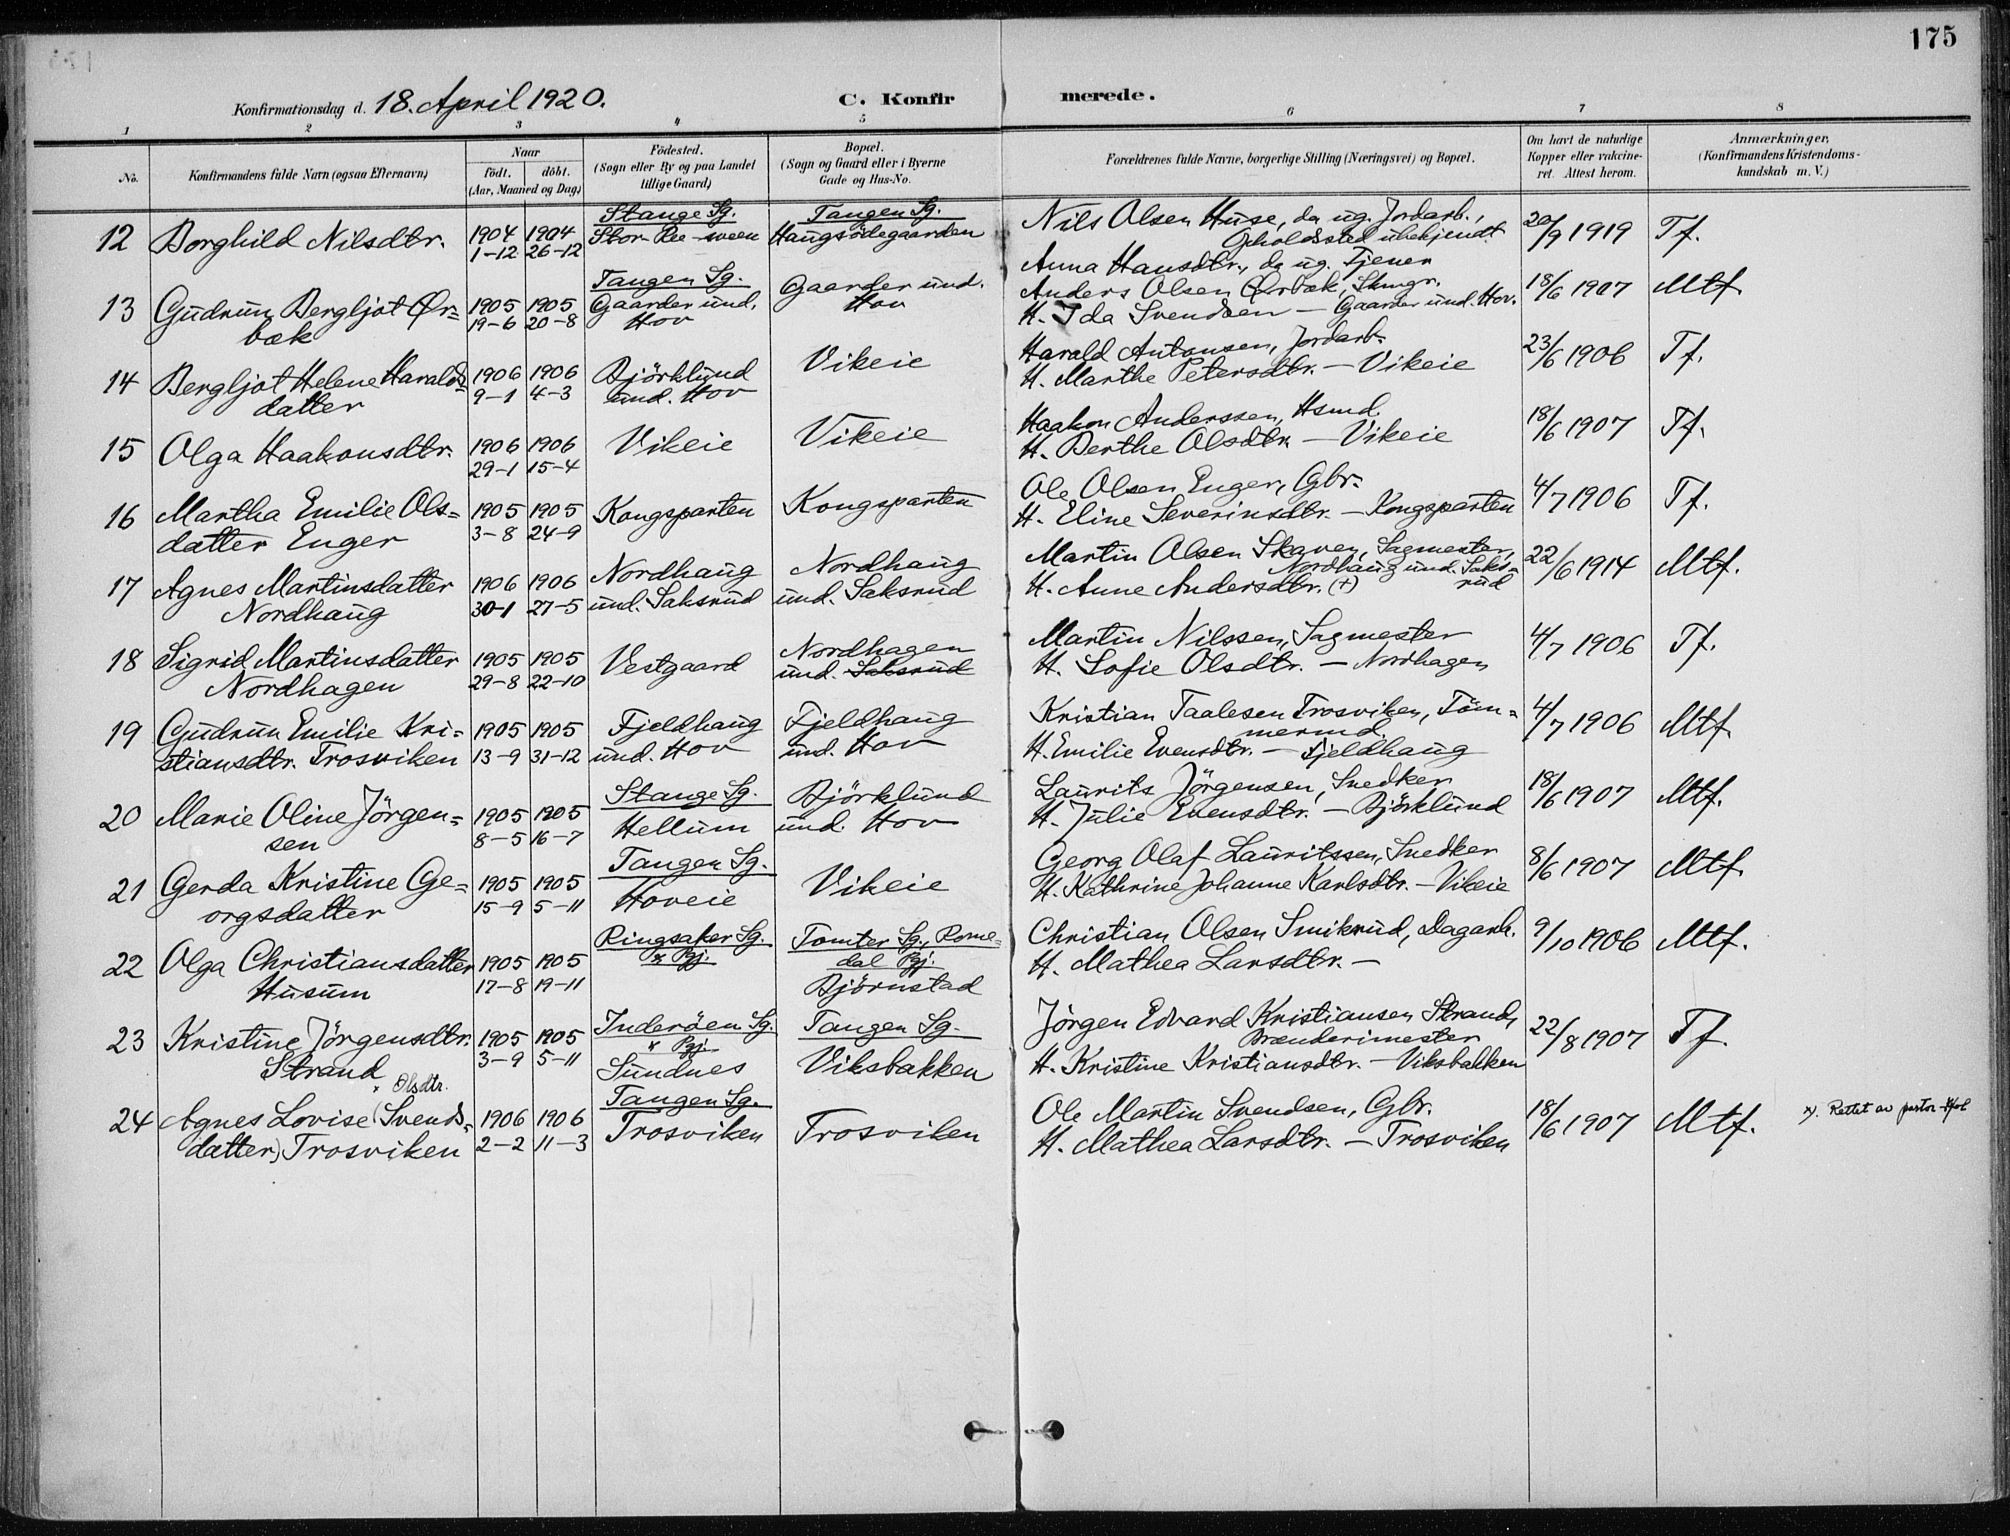 175
Konfirmationsdag d. 18. April 1920.
C. Konfirmerede.
1 2 3 4 5 6 7 8
No.
Konfirmandens fulde Navn (ogsaa Efternavn)
Naar
født. døbt.
(Aar, Maaned og Dag)
Födested.
(Sogn eller By og paa Landet
tillige Gaard)
Bopæl.
(Sogn og Gaard eller i Byerne
Gade og Hus-No.
Forældrenes fulde Navne, borgerlige Stilling (Næringsvei) og Bopæl.
Om havt de naturlige
Kopper eller vakcine-
ret. Attest herom.
Anmærkninger,
(Konfirmandens Kristendoms-
kundskab m. V.)
12 Borghild Nilsdtr. 1904 1904
1-12 26-12
Stange Sg.
Stor Ree-sveen
Tangen Sg.
Haugsödegaarden
Nils Olsen Huse, da ug. Jordarb.,
Opholdssted ubekjendt
Anna Hansdtr., da ug. Tjener
20/9 1919 Tf.
13 Gudrun Bergljot Ør=
bæk
1905 1905
19-6 20-8
Tangen Sg.
Gaarder und.
Hov
Gaarder und.
Hov
Anders Olsen Ørbæk, Skmgr.
H. Ida Svendsen — Gaarder und. Hov.
18/6 1907 Mtf
14 Bergljot Helene Haralds=
datter
1906 1906
9-1 4-3
Björklund
und. Hov
Vikeie
Harald Antonsen, Jordarb.
H. Marthe Petersdtr. — Vikeie
23/6 1906 Tf.
15 Olga Haakonsdtr. 1906 1906
29-1 15-4
Vikeie
Vikeie
Haakon Anderssen, Hsmd.
H. Berthe Olsdtr. — Vikeie
18/6 1907 Tf.
16 Martha Emilie Ols=
datter Enger
1905 1905
3-8 24-9
Kongsparten
Kongsparten
Ole Olsen Enger, Gbr.
H. Eline Severinsdtr. — Kongsparten
4/7 1906 Tf.
17 Agnes Martinsdatter
Nordhaug
1906 1906
30-1 27-5
Nordhaug
und. Saksrud
Nordhaug
und. Saksrud
Martin Olsen Skaven, Sagmester,
Nordhaug und. Saks=
rud
H. Anne Andersdtr. (+)
22/6 1914 Mtf.
18 Sigrid Martinsdatter
Nordhagen
1905 1905
29-8 22-10
Vestgaard
Nordhagen
und. Saksrud
Martin Nilssen, Sagmester
H. Sofie Olsdtr. — Nordhagen
4/7 1906 Tf.
19 Gudrun Emilie Kri=
stiansdtr. Trosviken
1905 1905
13-9 31-12
Fjeldhaug
und. Hov
Fjeldhaug
und. Hov
Kristian Taalesen Trosviken, Töm=
mermd.
H. Emilie Evensdtr. — Fjeldhaug
4/7 1906 Mtf
20 Marie Oline Jörgen=
sen
1905 1905
8-5 16-7
Stange Sg.
Hellum
Björklund
und. Hov
Laurits Jörgensen, Snedker
H. Julie Evensdtr. — Björklund
18/6 1907 Mtf.
21 Gerda Kristine Ge=
orgsdatter
1905 1905
15-9 5-11
Tangen Sg.
Hoveie
Vikeie
Georg Olaf Lauritssen, Snedker
H. Kathrine Johanne Karlsdtr. — Vikeie
8/6 1907 Mtf
22 Olga Christiansdatter
Husum
1905 1905
17-8 19-11
Ringsaker Sg.
x Pgj.
Tomter Sg., Rome=
dal Pgj.
Björnstad
Christian Olsen Smikrud, Dagarb.
H. Mathea Larsdtr. —
9/10 1906 Mtf.
23 Kristine Jörgensdtr.
Strand
1905 1905
3-9 5-11
Inderöen Sg.
x Pgj.
Sundnes
Tangen Sg.
Viksbakken
Jörgen Edvard Kristiansen Strand,
Brænderimester
H. Kristine Kristiansdtr. — Viksbakken
22/8 1907 Tf
x Olsdtr.
24 Agnes Lovise (Svends=
datter) Trosviken
1906 1906
2-2 11-3
Tangen Sg.
Trosviken
Trosviken
Ole Martin Svendsen, Gbr.
H. Mathea Larsdtr. — Trosviken
18/6 1907 Mtf.
x). Rettet av pastor